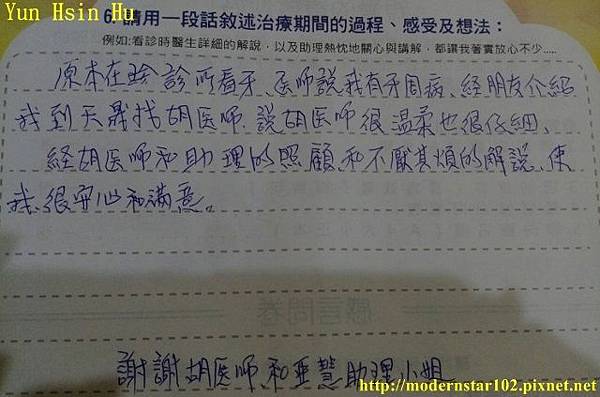 Yun Hsin Hu
6. 請用一段話敘述治療期間的過程、感受及想法：
例如:看診時醫生詳細的解說，以及助理熱忱地關心與講解，都讓我著實放心不少.....
原本在 診所看牙、医師說我有牙周病、経朋友介紹
我到天晟找胡医師.說胡医師很温柔也很仔細、
経胡医師和助理的照顧和不厭其煩的解說、使
我很安心和滿意。
感言問卷
謝謝胡医師和亚慧助理小姐
http://modernstar102.pixnet.net